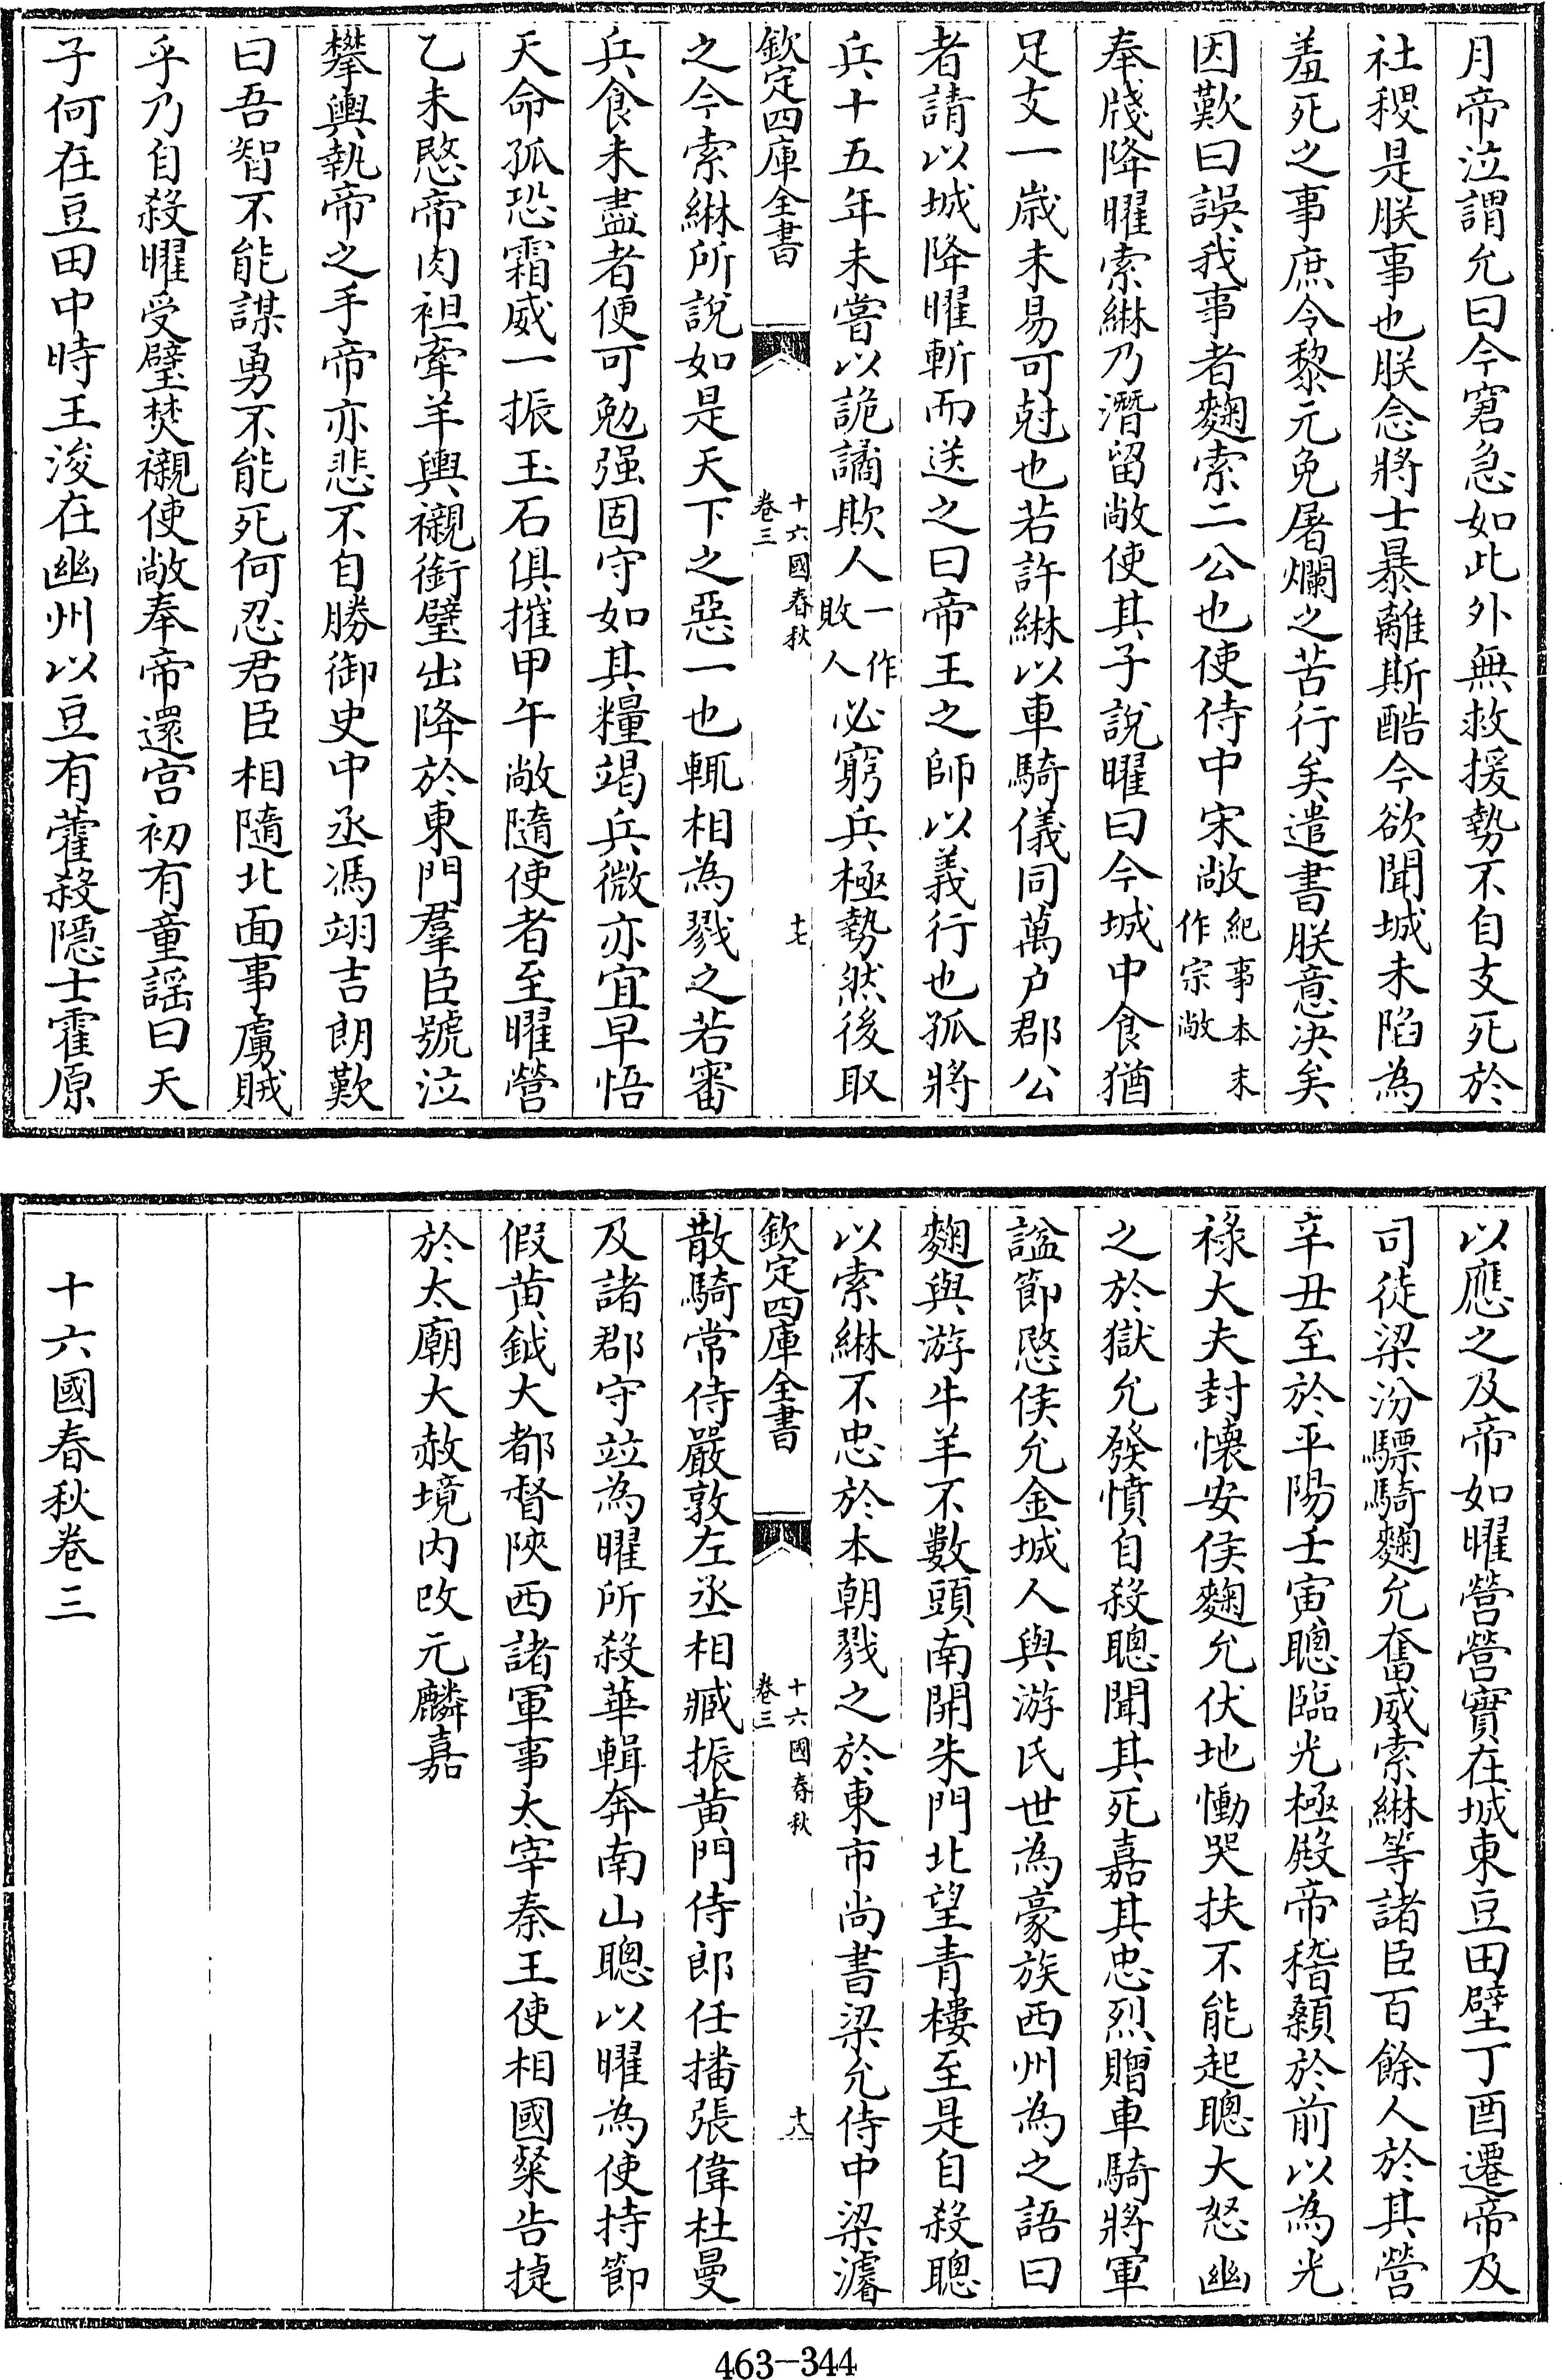 月帝泣謂允曰今窘急如此外無救援勢不自支死於
社稷是朕事也朕念將士暴離斯酷今欲聞城未陷為
羞死之事庶令黎元免屠爛之苦行矣遣書朕意决矣
因歎曰誤我事者麴索二公也使侍中宋敞紀事本末作宗敞
奉牋降曜索綝乃潛留敞使其子說曜曰今城中食猶
足支一歲未易可尅也若許綝以車騎儀同萬户郡公
者請以城降曜斬而送之曰帝王之師以義行也孤將
兵十五年未嘗以詭譎欺人一作敗人必窮兵極勢然後取
欽定四庫全書
十六國春秋
卷三
十七
之今索綝所說如是天下之惡一也輒相為戮之若審
兵食未盡者便可勉强固守如其糧竭兵微亦宜早悟
天命孤恐霜威一振玉石俱摧甲午敞隨使者至曜營
乙未愍帝肉袒牽羊輿襯銜璧出降於東門羣臣號泣
攀輿執帝之手帝亦悲不自勝御史中丞馮翊吉朗歎
曰吾智不能謀勇不能死何忍君臣相隨北面事虜賊
乎乃自殺曜受璧焚襯使敞奉帝還宫初有童謡曰天
子何在豆田中時王浚在幽州以豆有藿殺隱士霍原
以應之及帝如曜營營實在城東豆田壁丁酉遷帝及
司徒梁汾驃騎麴允奮威索綝等諸臣百餘人於其營
辛丑至於平陽壬寅聰臨光極殿帝稽顙於前以為光
禄大夫封懐安侯麴允伏地慟哭扶不能起聰大怒幽
之於獄允發憤自殺聰聞其死嘉其忠烈贈車騎將軍
諡節愍侯允金城人與游氏世為豪族西州為之語曰
麴與游牛羊不數頭南開朱門北望青樓至是自殺聰
以索綝不忠於本朝戮之於東市尚書梁允侍中梁濬
欽定四庫全書
十六國春秋
卷三
十八
散騎常侍嚴敦左丞相臧振黄門侍郎任播張偉杜曼
及諸郡守竝為曜所殺華輯奔南山聰以曜為使持節
假黄鉞大都督陜西諸軍事太宰秦王使相國粲告捷
於太廟大赦境内改元麟嘉
十六國春秋卷三
463-344